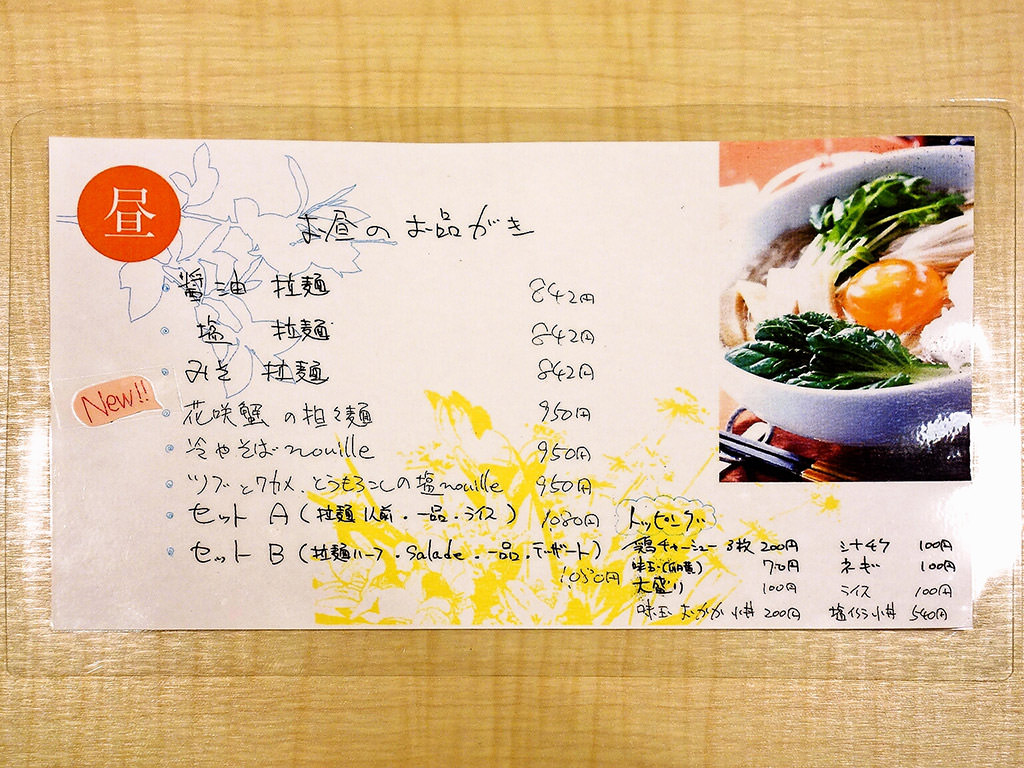 昼
お昼のお品がき
醤油 拉麺 842円
塩 拉麺 842円
みそ 拉麺 842円
New!!
花咲蟹の担々麺 950円
冷やそばnouille 950円
ツブとワカメ、とうもろこしの塩nouille 950円
セット A (拉麺1人前・一品・ライス) 1080円
セット B (拉麺ハーフ・Salade・一品・デザート)
1050円
トッピング
鶏チャーシュー 3枚 200円 シナチク 100円
味玉 70円 ネギ 100円
大盛り 100円 ライス 100円
味玉おかか小丼 200円 塩イクラ小丼 540円